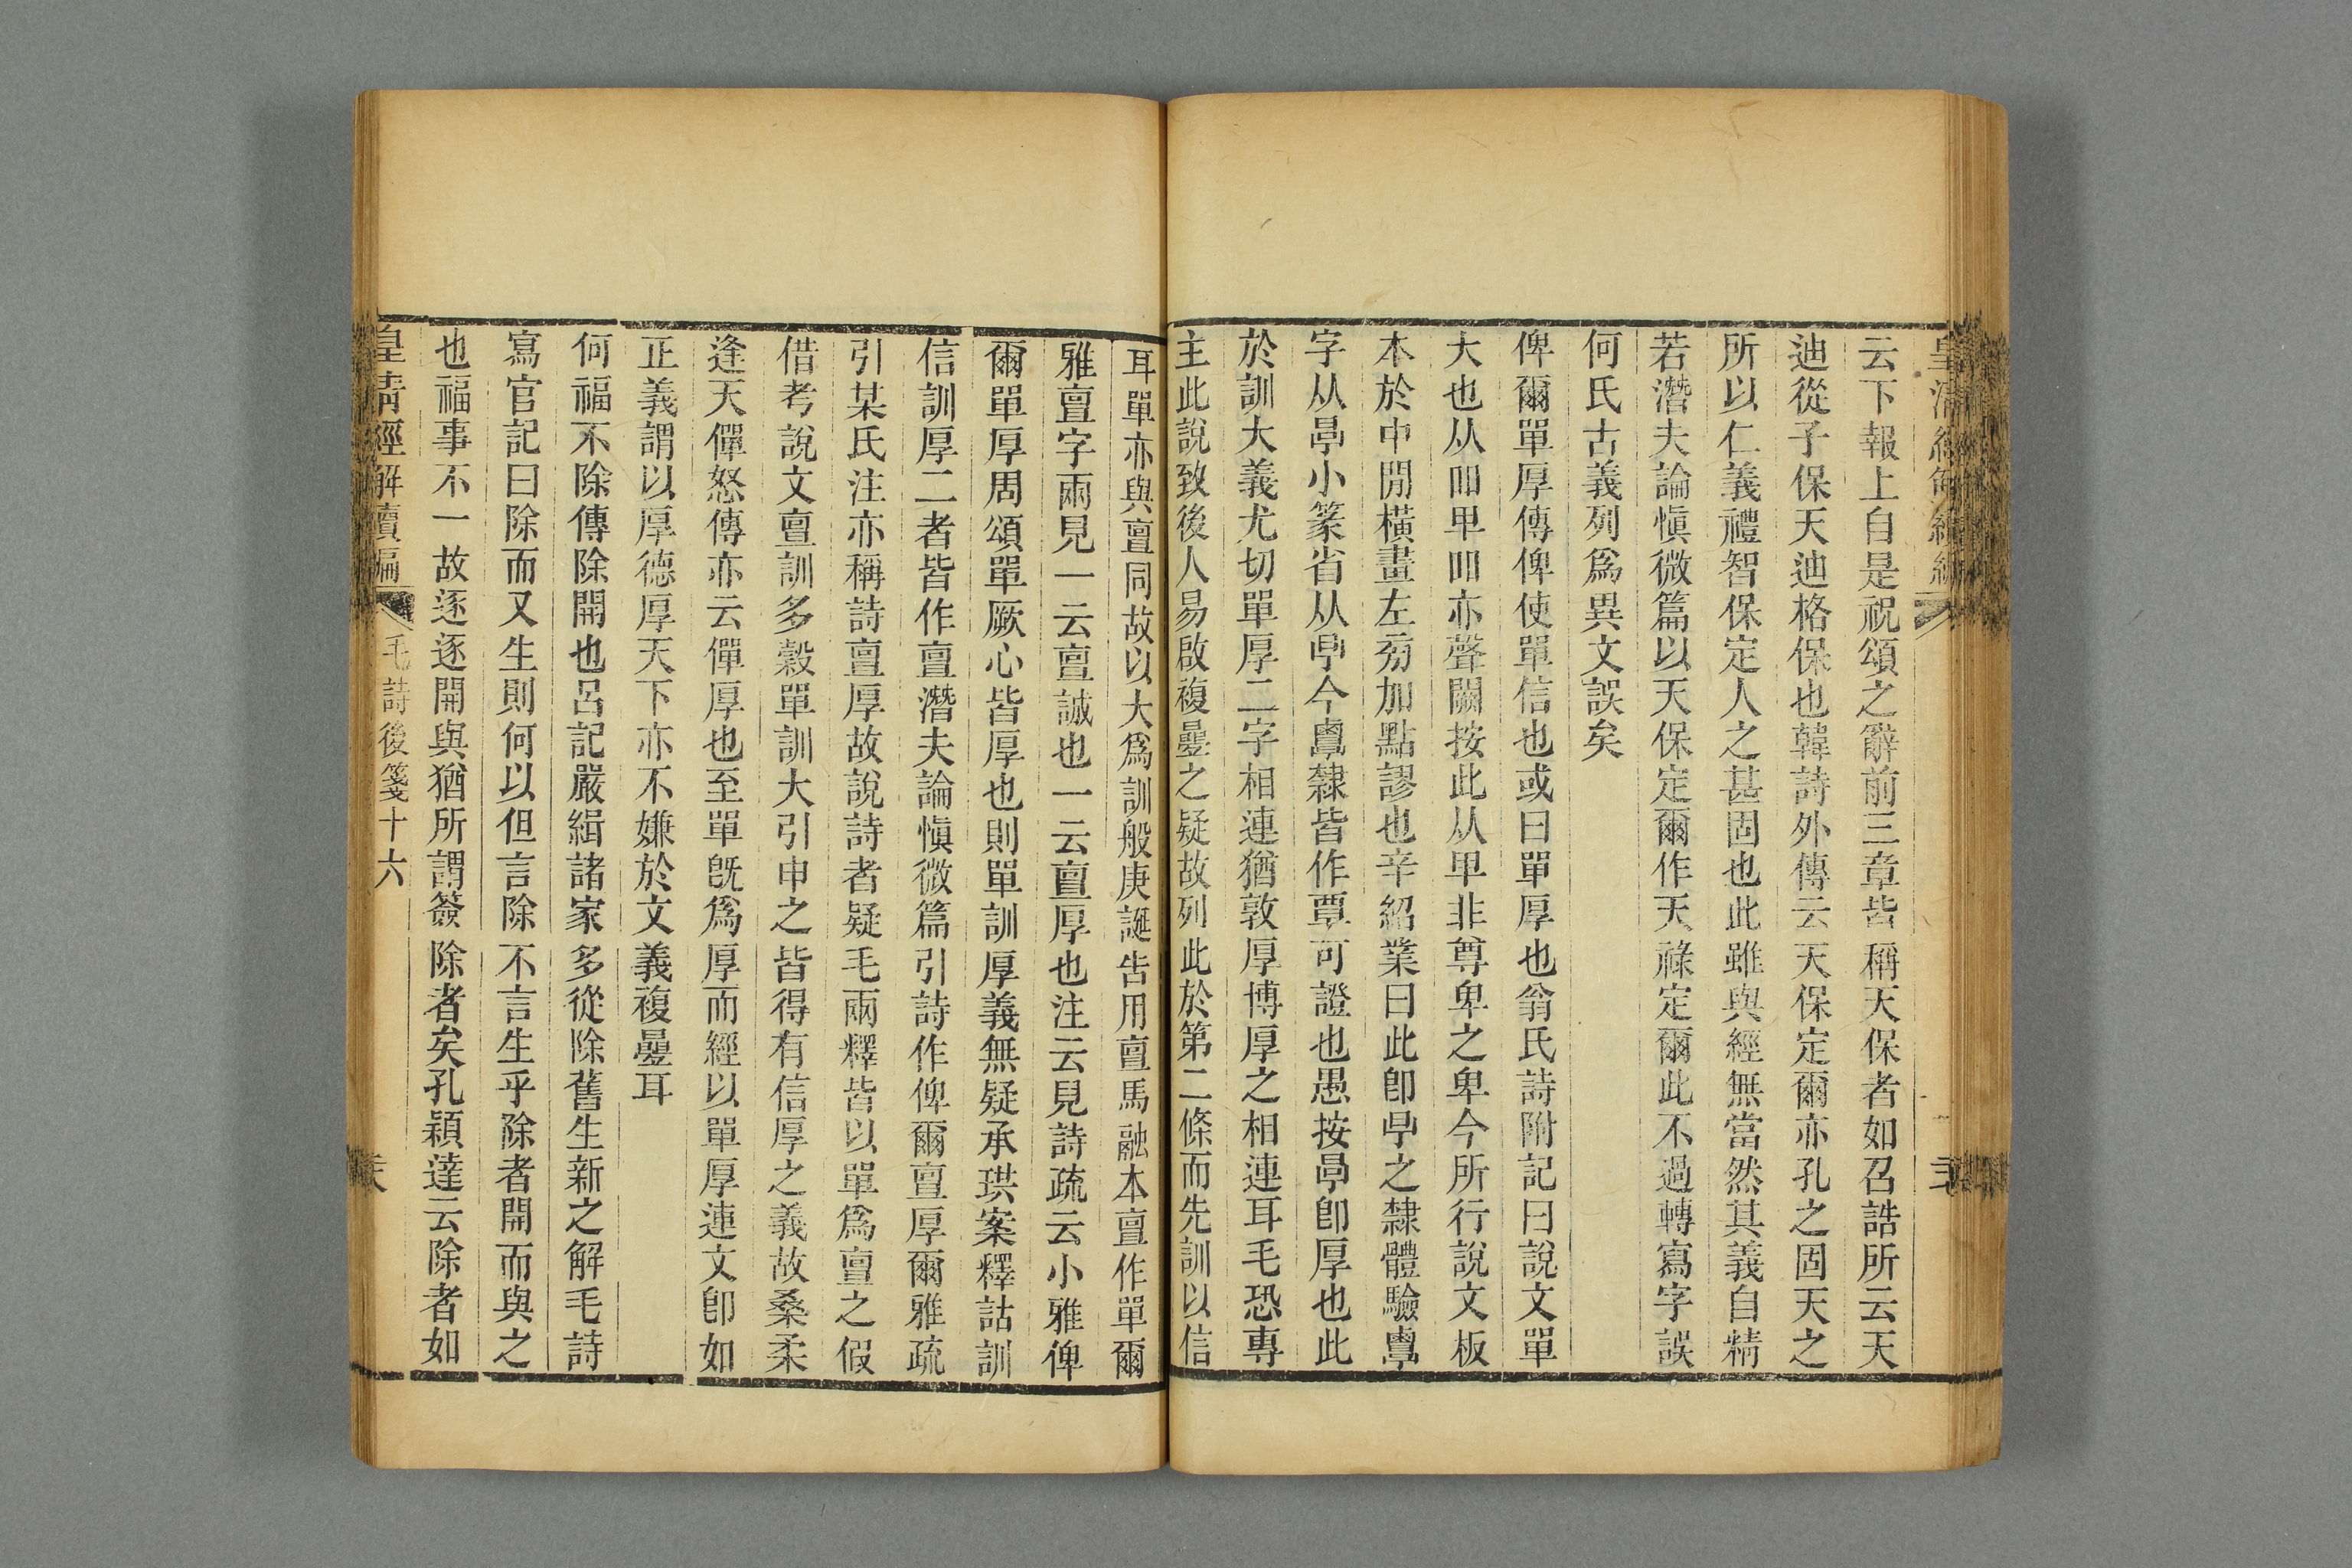 云下報上自是祝頌之辭前三章皆稱天保者如召誥所云天
迪從子保天迪格保也韓詩外傳云天保定爾亦孔之固天之
所以仁義禮智保定人之甚固也此雖與經無當然其義自精
若潛夫論愼微篇以天保定爾作天祿定爾此不過轉寫字誤
何氏古義列爲異文誤矣
俾爾單厚傳俾使單信也或曰單厚也翁氏詩附記曰說文單
大也从吅𠦒吅亦聲闕按此从𠦒非尊卑之卑今所行說文板
本於中閒橫畫左㫄加點謬也辛紹業曰此卽𣆪之隸體驗𪉷
字从㫗小篆省从𣆪今𪉷隸皆作覃可證也愚按㫗卽厚也此
於訓大義尤切單厚二字相連猶敦厚博厚之相連耳毛恐專
主此說致後人易啟複疊之疑故列此於第二條而先訓以信
耳單亦與亶同故以大爲訓般庚誕告用亶馬融本亶作單爾
雅亶字兩見一云亶誠也一云亶厚也注云見詩疏云小雅俾
爾單厚周頌單厥心皆厚也則單訓厚義無疑承珙案釋詁訓
信訓厚二者皆作亶潛夫論愼微篇引詩作俾爾亶厚爾雅疏
引某氏注亦稱詩亶厚故說詩者疑毛兩釋皆以單爲亶之假
借考說文亶訓多穀單訓大引申之皆得有信厚之義故桑柔
逢天僤怒傳亦云僤厚也至單旣爲厚而經以單厚連文卽如
正義謂以厚德厚天下亦不嫌於文義複疊耳
何福不除傳除開也呂記嚴緝諸家多從除舊生新之解毛詩
寫官記曰除而又生則何以但言除不言生乎除者開而與之
也福事不一故逐逐開與猶所謂簽除者矣孔穎達云除者如
皇清經解續編
毛詩後箋十六